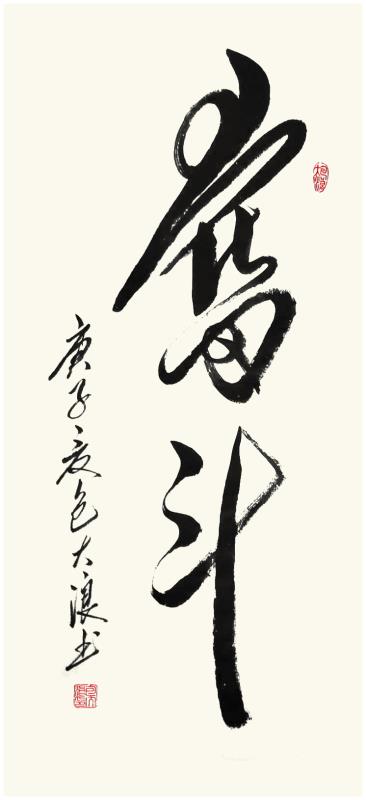 奮斗
庚子夏色大浪书